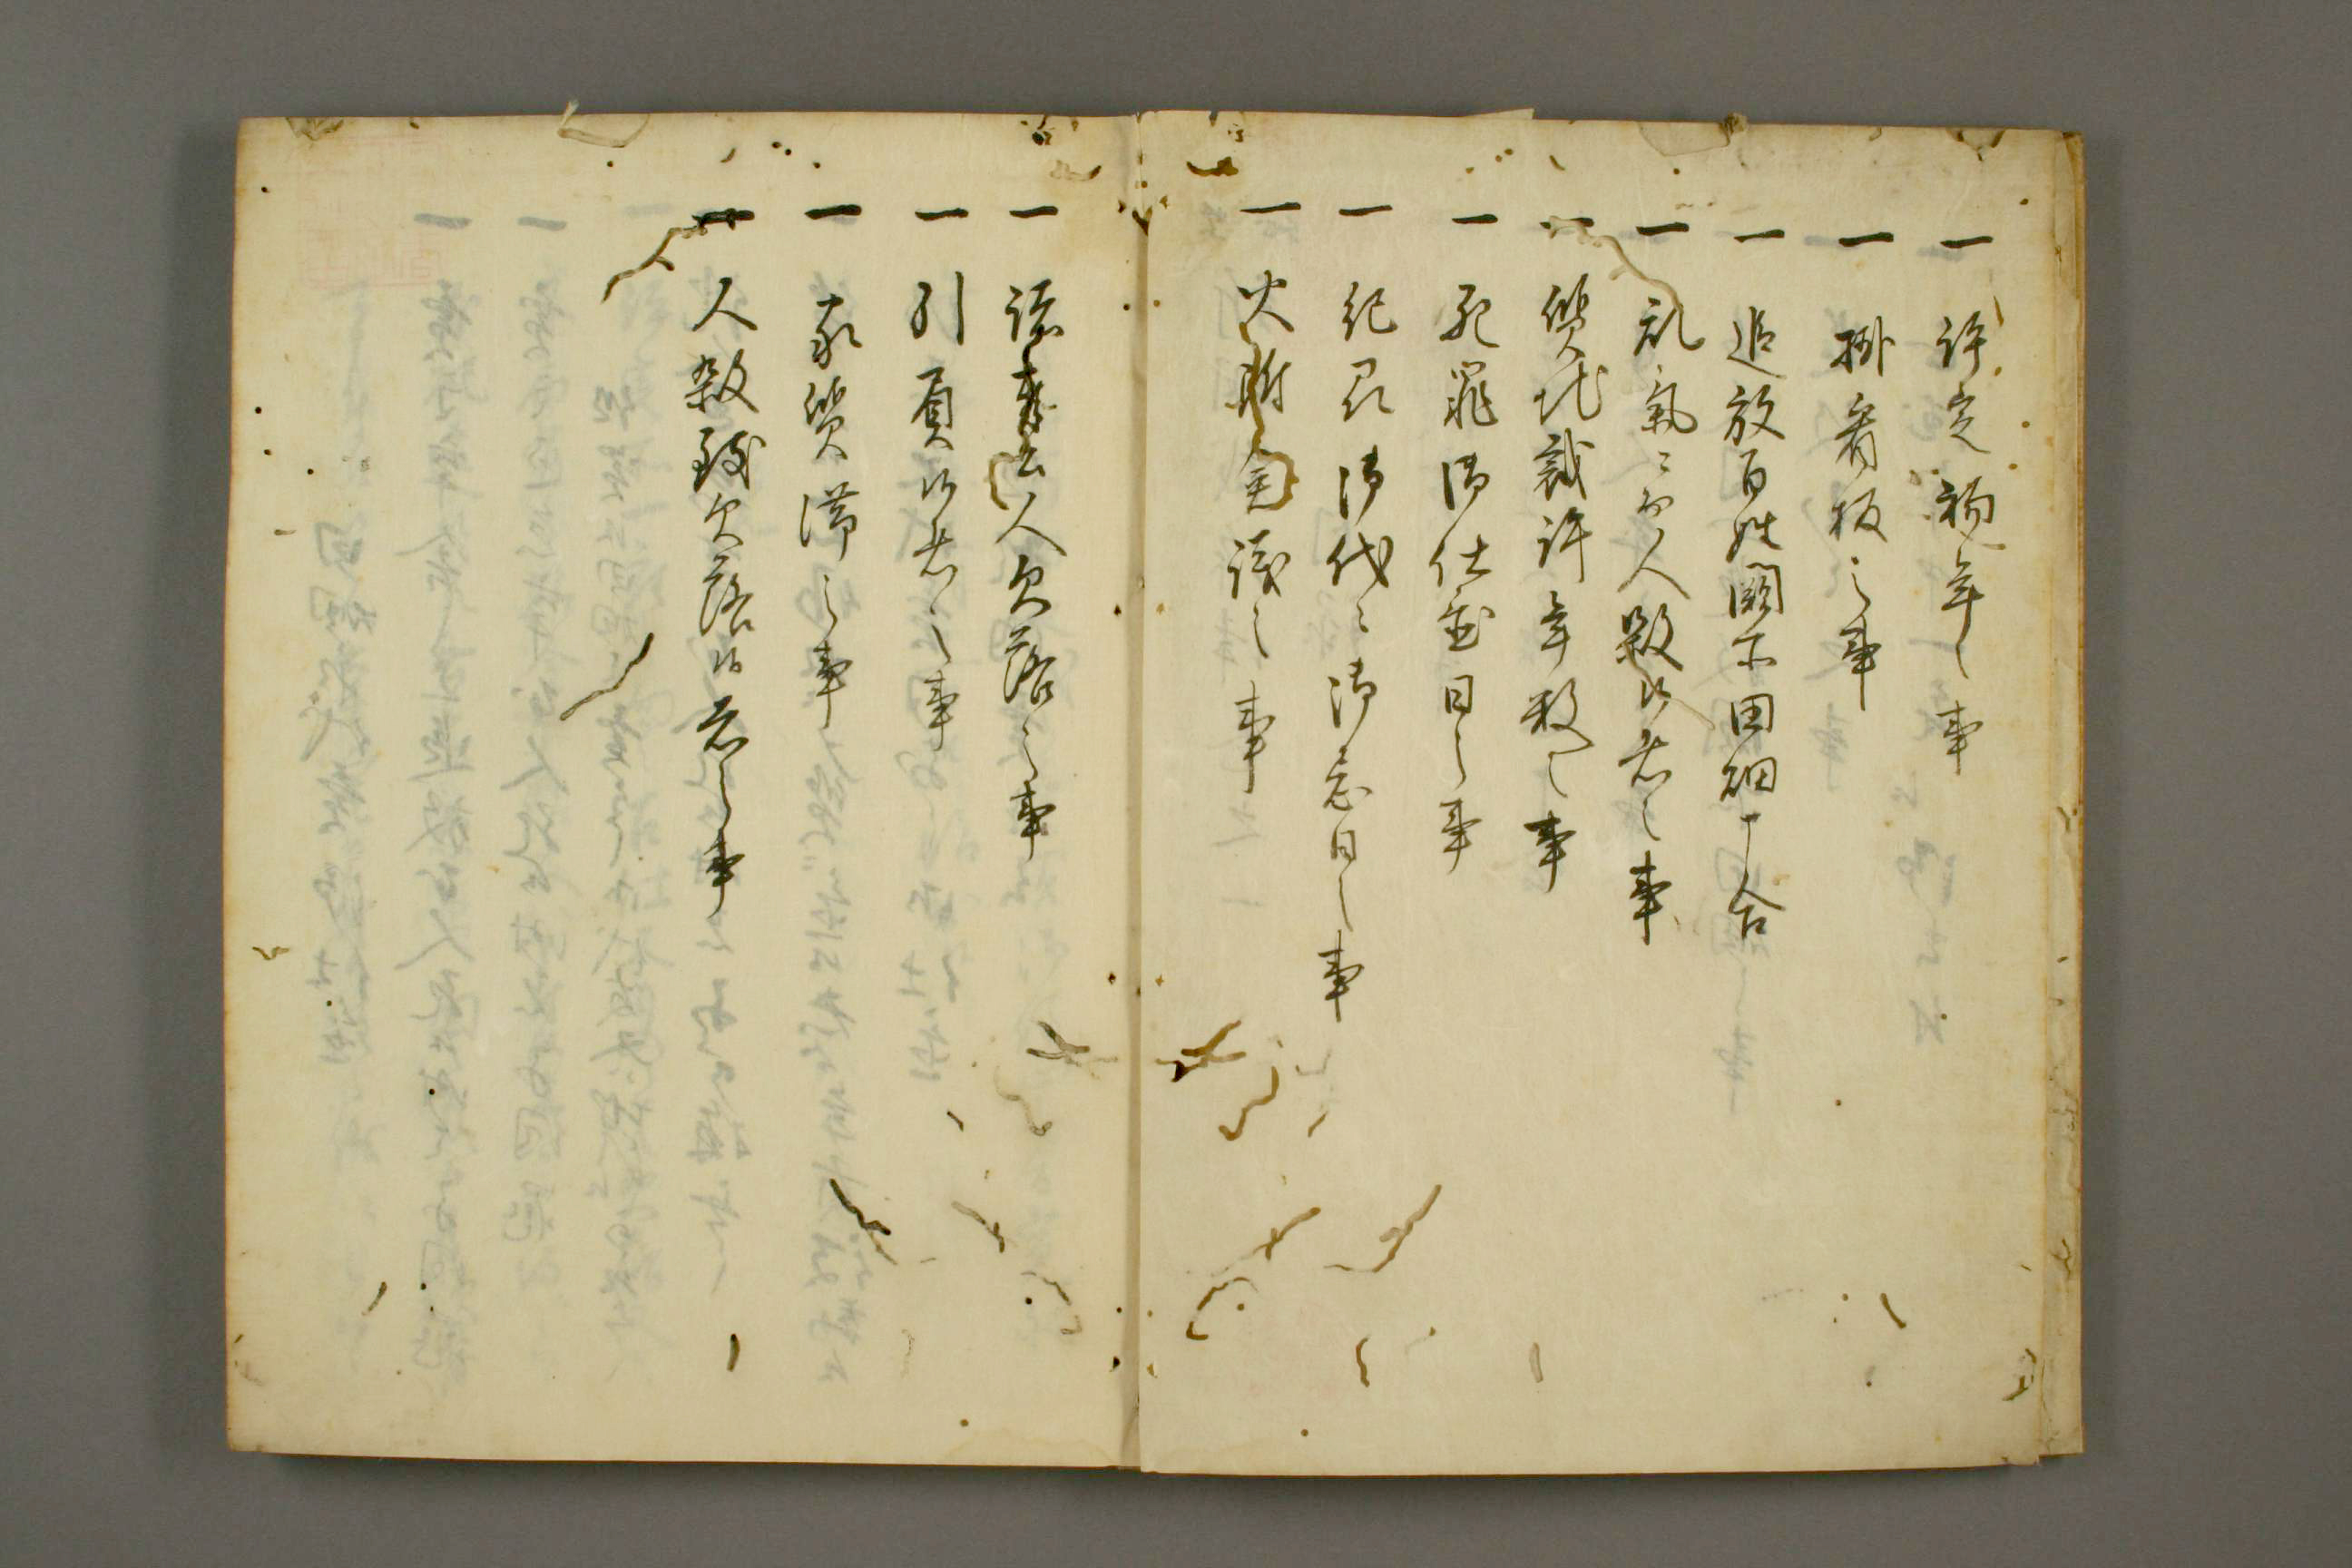 一 評定初年之事
一 捌看板之事
一 追放百姓闕所田畑丁合
一 乱気ニ而人殺候者之事
一 質地裁許年数之事
一 死罪御仕置日之事
一 紀君御代々御忌日之事
一 火附金議之事
一 請人欠落之事
一 引負候者之事
一 家質滞之事
一 人殺致欠落候者之事